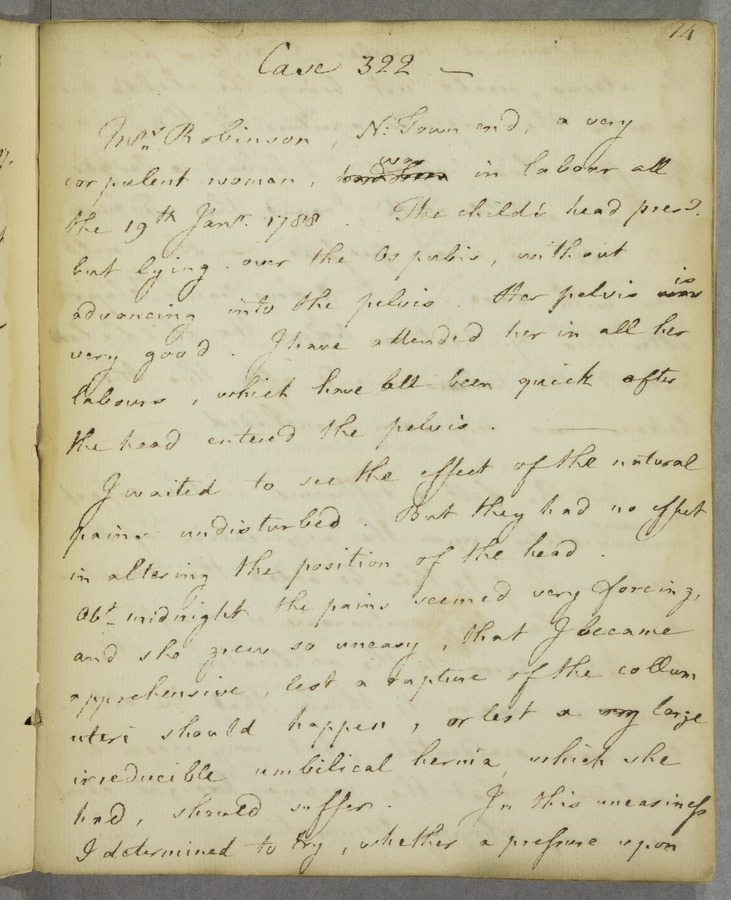 74
Case 322 —
Mrs. Robinson, N. Town end, a very
corpulent woman, was in labour all
the 19th Janr. 1788. The child's head presd.
but lying over the Os pubis, without
advancing into the pelvis. Her pelvis is
very good. I have attended her in all her
labours, which have all been quick after
the head entered the pelvis. —
I waited to see the effect of the natural
pains undisturbed. But they had no effect
in altering the position of the head.
Abt. midnight the pains seemed very forcing,
and she grew so uneasy, that I became
apprehensive, lest a rupture of the collum
uteri should happen, or lest a large
irreducible umbilical hernia, which she
had, should suffer. In this uneasiness
I determined to try, whether a pressure upon